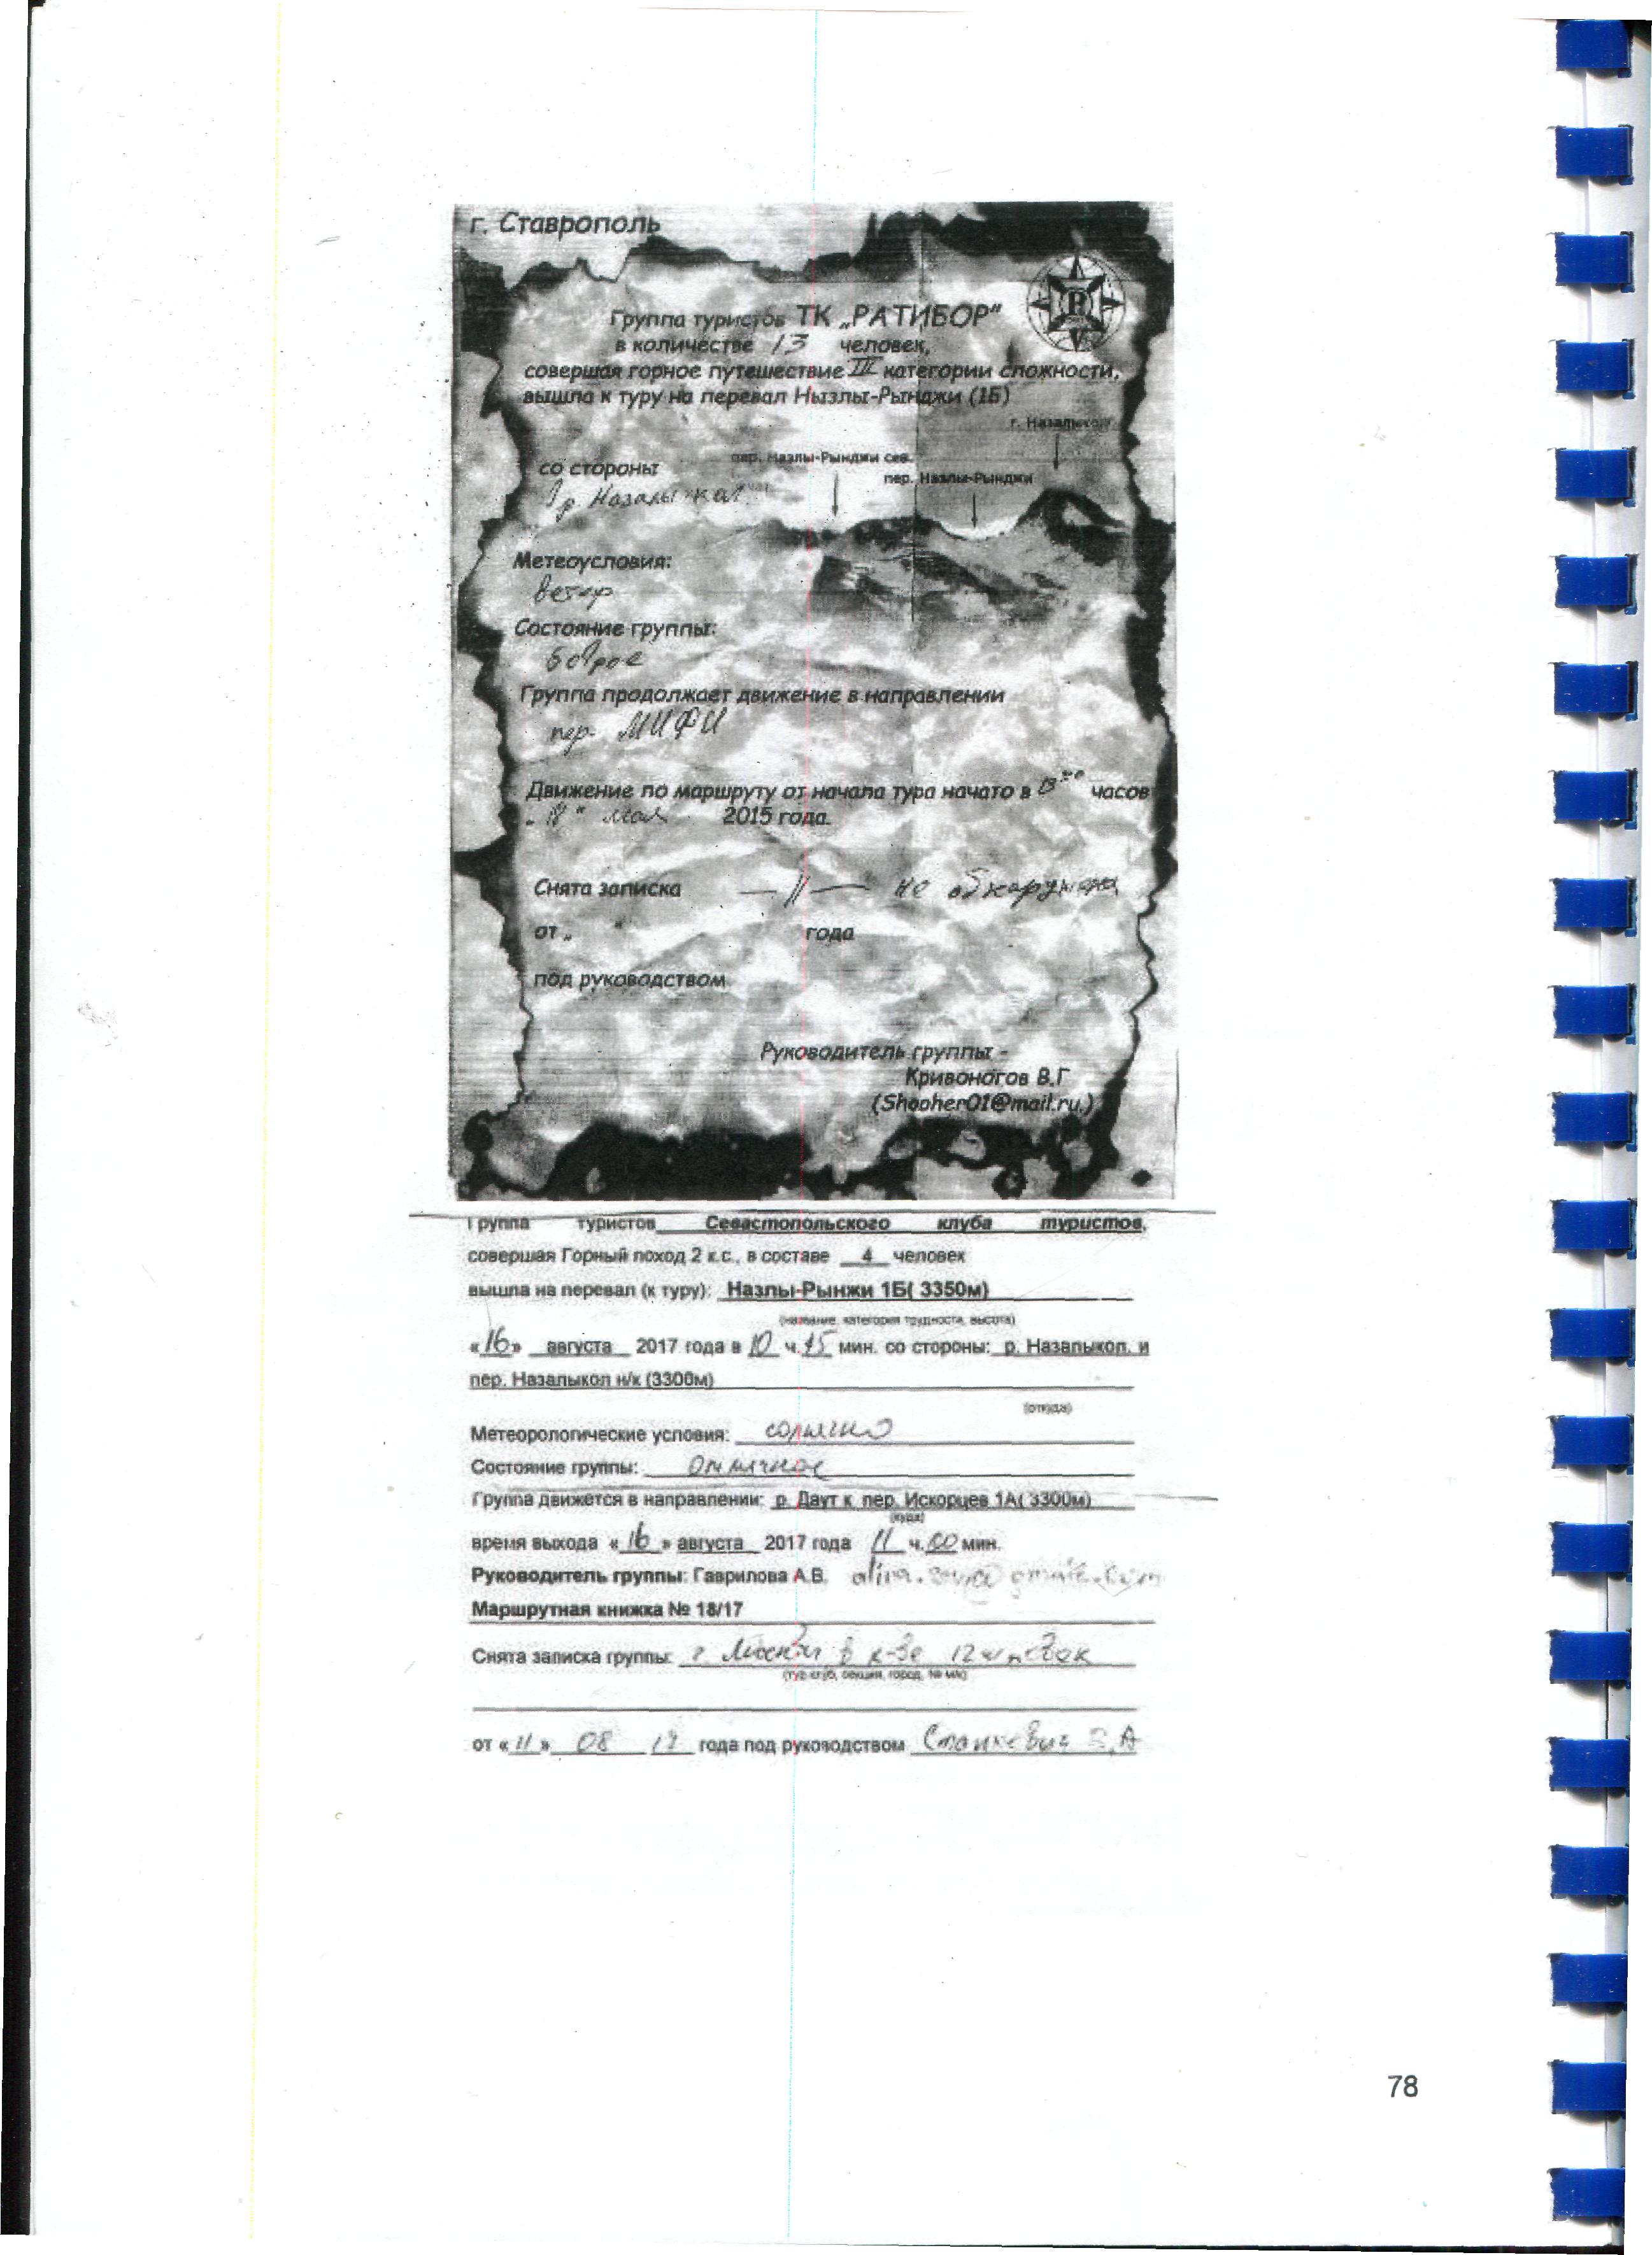 г. Ставрополь
Группа туристов ТК „РАТИБОР"
в количестве 13 человек,
совершая горное путешествие III категории сложности,
вышла к туру на перевал Нызлы-Рынджи (1Б)
г. Назалыкол
пер. Назлы-Рынджи сев.
со стороны
пер. Назлы-Рынджи
р Назалы-кол
Метеоусловия:
ветер
Состояние группы:
бодрое
Группа продолжает движение в направлении
пер. МИФИ
Движение по маршруту от начала тура начато в 13 00 часов
„18" мая 2015 года.
Снята записка — // — не обнаружена
от „ " года
под руководством
Руководитель группы -
Кривоногов В.Г
(Shooher01@mail.ru.)
Группа туристов Севастопольского клуба туристов,
совершая Горный поход 2 к.с., в составе 4 человек
вышла на перевал (к туру): Назлы-Рынжи 1Б( 3350м)
(название, категория трудности, высота)
«16» августа 2017 года в 10 ч.45 мин. со стороны: р. Назалыкол, и
пер. Назалыкол н/к (3300м)
(откуда)
Метеорологические условия: солнечно
Состояние группы: отличное
Группа движется в направлении: р. Даут к пер. Искорцев 1А( 3300м)
(куда)
время выхода «16» августа 2017 года 11 ч.00 мин.
Руководитель группы: Гаврилова А.В.
Маршрутная книжка № 18/17
Снята записка группы: г Москвы в к-ве 12 человек
(тур клуб, секция, город, № м/к)
от «11» 08 17 года под руководством Станкевич А
78